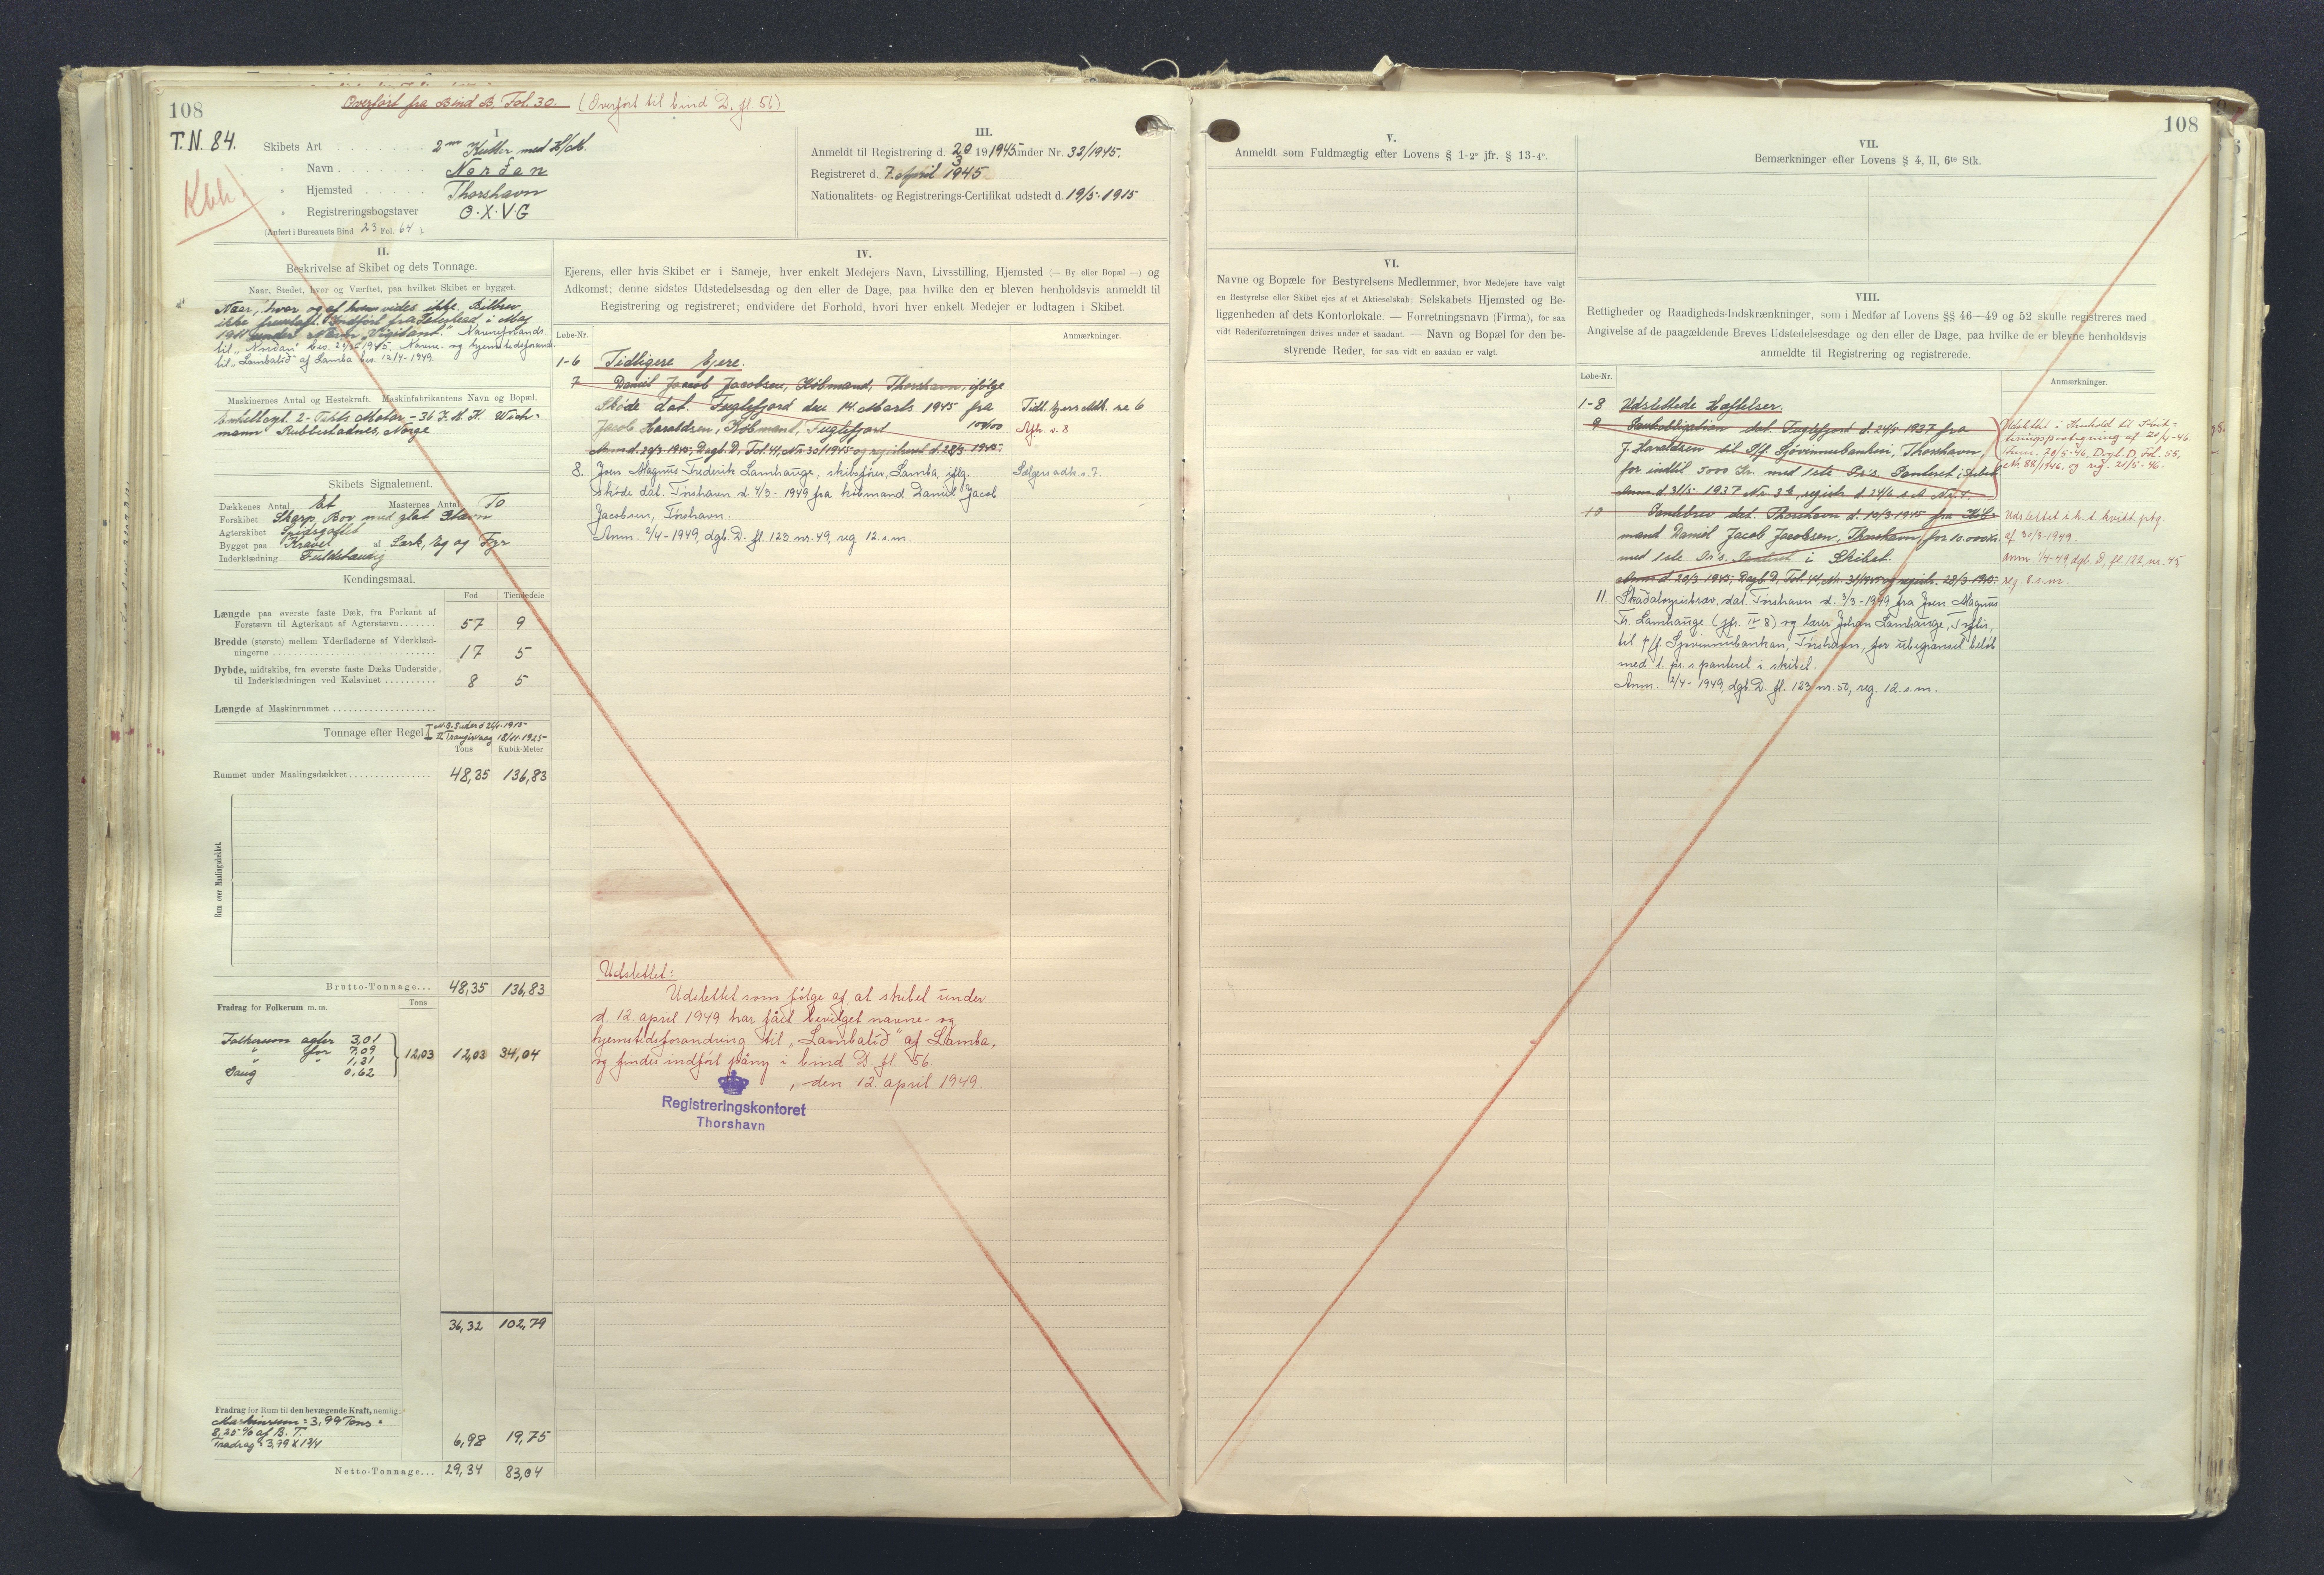 108
Overført fra Bind B. Fol. 30. (Overført til bind D. fl 56)
T.N. 84.
Kbh
I
Skibets Art 2 m Kutter med H/M.
" Navn Norðan
" Hjemsted Thorshavn
" Registreringsbogstaver O·X·V·G
(Anført i Bureauets Bind 23 Fol. 64).
III.
Anmeldt til Registrering d. 20/3 1945 under Nr. 32/1945.
Registreret d. 7. April 1945
Nationalitets- og Registrerings-Certifikat udstedt d. 19/5-1915
II.
Beskrivelse af Skibet og dets Tonnage.
Naar, Stedet, hver og Værftet, paa hvilket Skibet er bygget.
Naar, hvor og af hvem vides ikke. Bilbrev
ikke fremlagt. Indført fra Peterhead i Maj
under Navn "Visitant." Navneforandr.
til "Norðan" bev. 1945. Navne- og hjemstedsforandr.
til "Lambalið" af Lamba bev. 12/4-1949.
Maskinernes Antal og Hestekraft. Maskinfabrikantens Navn og Bopæl.
Enkeltcyl. 2-Takts Motor - 36 I.H.K. Wich-
mann Rubbestadnes, Norge
Skibets Signalement.
Dækkenes Antal Et Masternes Antal To
Forskibet Skarp Bov med glat Stævn
Agterskibet Spidsgattet
Bygget paa Kravel af Lærk, Eg og Fyr
Inderklædning Fuldstændig
Kendingsmaal.
Fod Tiendedele
Længde paa øverste faste Dæk, fra Forkant af
Forstævn til Agterkant af Agterstævn 57 9
Bredde (største) mellem Yderfladerne af Yderklæd-
ningerne 17 5
Dybde, midtskibs, fra øverste faste Dæks Underside
til Inderklædningen ved Kølsvinet 8 5
Længde af Maskinrummet
Tonnage efter Regel I
II Trangisvaag 18/11-1925
Tons Kubik-Meter
Rummet under Maalingsdækket 48,35 136,83
Rum over Maalingsdækket.
Brutto-Tonnage... 48,35 136,83
Fradrag for Folkerum m. m. Tons
Folkerum agter 3,01
" for 7,09
" " 1,31
Lang 0,62
12,03 12,03 34,04
36,32 102,79
Fradrag for Rum til den bevægende Kraft, nemlig:
Maskinrum = 3,99 Tons =
8,25 % af B. T.
Fradrag = 3,99 x 1 3/4 6,98 19,75
Netto-Tonnage... 29,34 83,04
IV.
Ejerens, eller hvis Skibet er i Sameje, hver enkelt Medejers Navn, Livsstilling, Hjemsted (— By eller Bopæl —) og
Adkomst; denne sidstes Udstedelsesdag og den eller de Dage, paa hvilke den er bleven henholdsvis anmeldt til
Registrering og registreret; endvidere det Forhold, hvori hver enkelt Medejer er lodtagen i Skibet.
Løbe-Nr. Anmærkninger.
1-6 Tidligere Ejere.
7 Daniel Jacob Jacobsen, Købmand, Thorshavn, ifølge
Skøde dat. Fuglefjord den 14. Marts 1945 fra Tidl. Ejers Adk. se 6
Jacob Haraldsen, Købmand, Fuglefjord 100/100 Afh. s. 8
Anm d. 20/3-1945, Dagb. D, Fol. 44, Nr. 30/1945 og registreret d. 28/3-1945.
8. Joen Magnus Frederik Lamhauge, skibsfører, Lamba, iflg. Sælgers adk. s. 7.
skøde dat. Tórshavn d. 4/3-1949 fra købmand Daniel Jacob
Jacobsen, Tórshavn.
Anm. 2/4-1949, dgb. D. fl 123 nr. 49, reg 12. s.m.
Udslettet:
Udslettet som følge af, at skibet under
d. 12. april 1949 har fået bevilget navne- og
hjemstedsforandring til "Lambalið" af Lamba,
og findes indført påny i bind D. fl. 56.
, den 12. april 1949.
Registreringskontoret
Thorshavn
108
V.
Anmeldt som Fuldmægtig efter Lovens § 1-2° jfr. § 13-4°.
VI.
Navne og Bopæle for Bestyrelsens Medlemmer, hvor Medejere have valgt
en Bestyrelse eller Skibet ejes af et Aktieselskab; Selskabets Hjemsted og Be-
liggenheden af dets Kontorlokale. — Forretningsnavn (Firma), for saa
vidt Rederiforretningen drives under et saadant. — Navn og Bopæl for den be-
styrende Reder, for saa vidt en saadan er valgt.
VII.
Bemærkninger efter Lovens § 4, II, 6te Stk.
VIII.
Rettigheder og Raadigheds-Indskrænkninger, som i Medfør af Lovens §§ 46—49 og 52 skulle registreres med
Angivelse af de paagældende Breves Udstedelsesdage og den eller de Dage, paa hvilke de er blevne henholdsvis
anmeldte til Registrering og registrerede.
Løbe-Nr. Anmærkninger.
1-8 Udslettede Hæftelser.
9 Panteobligation dat. Fuglefjord d. 24/5 1937 fra
J. Haraldsen til P/f Sjóvinnubankin, Thorshavn,
for indtil 5000 Kr. med 1ste Pr. s. Panteret i Skibet
Anm d. 31/5 1937 Nr. 36, registr. d. 24/6 s.A. No. 4.
Udslettet i Henhold til Kvit-
teringspaategning af 20/4-46.
Anm. 20/5-46, Dagb. D, Fol. 55,
Nr. 88/1946, og reg. 21/5-46.
10 Pantebrev dat. Thorshavn d. 10/3-1945 fra Køb-
mand Daniel Jacob Jacobsen, Thorshavn, for 10.000 Kr.
med 1ste Pr. s. Panteret i Skibet.
Anm d 20/3 1945, Dagb. D, Fol. 44, Nr. 31/1945 og registr. 28/3-1945.
Udslettet i.h.t. kvitt. ptg.
af 30/3-1949.
Anm. 1/4-49, dgb. D, fl 122, nr. 45
reg. 8. s.m.
11. Skaðaloysisbræv, dat. Tórshavn d. 3/3-1949 fra Joen Magnus
Fr. Lamhauge (jfr. IV 8) og lærer Johan Lamhauge, Toftir,
til P/f. Sjóvinnubankan, Tórshavn, for ubegrænset beløb
med 1. pr. s panteret i skibet.
Anm. 2/4-1949, dgb. D. fl. 123 nr. 50, reg. 12. s.m.